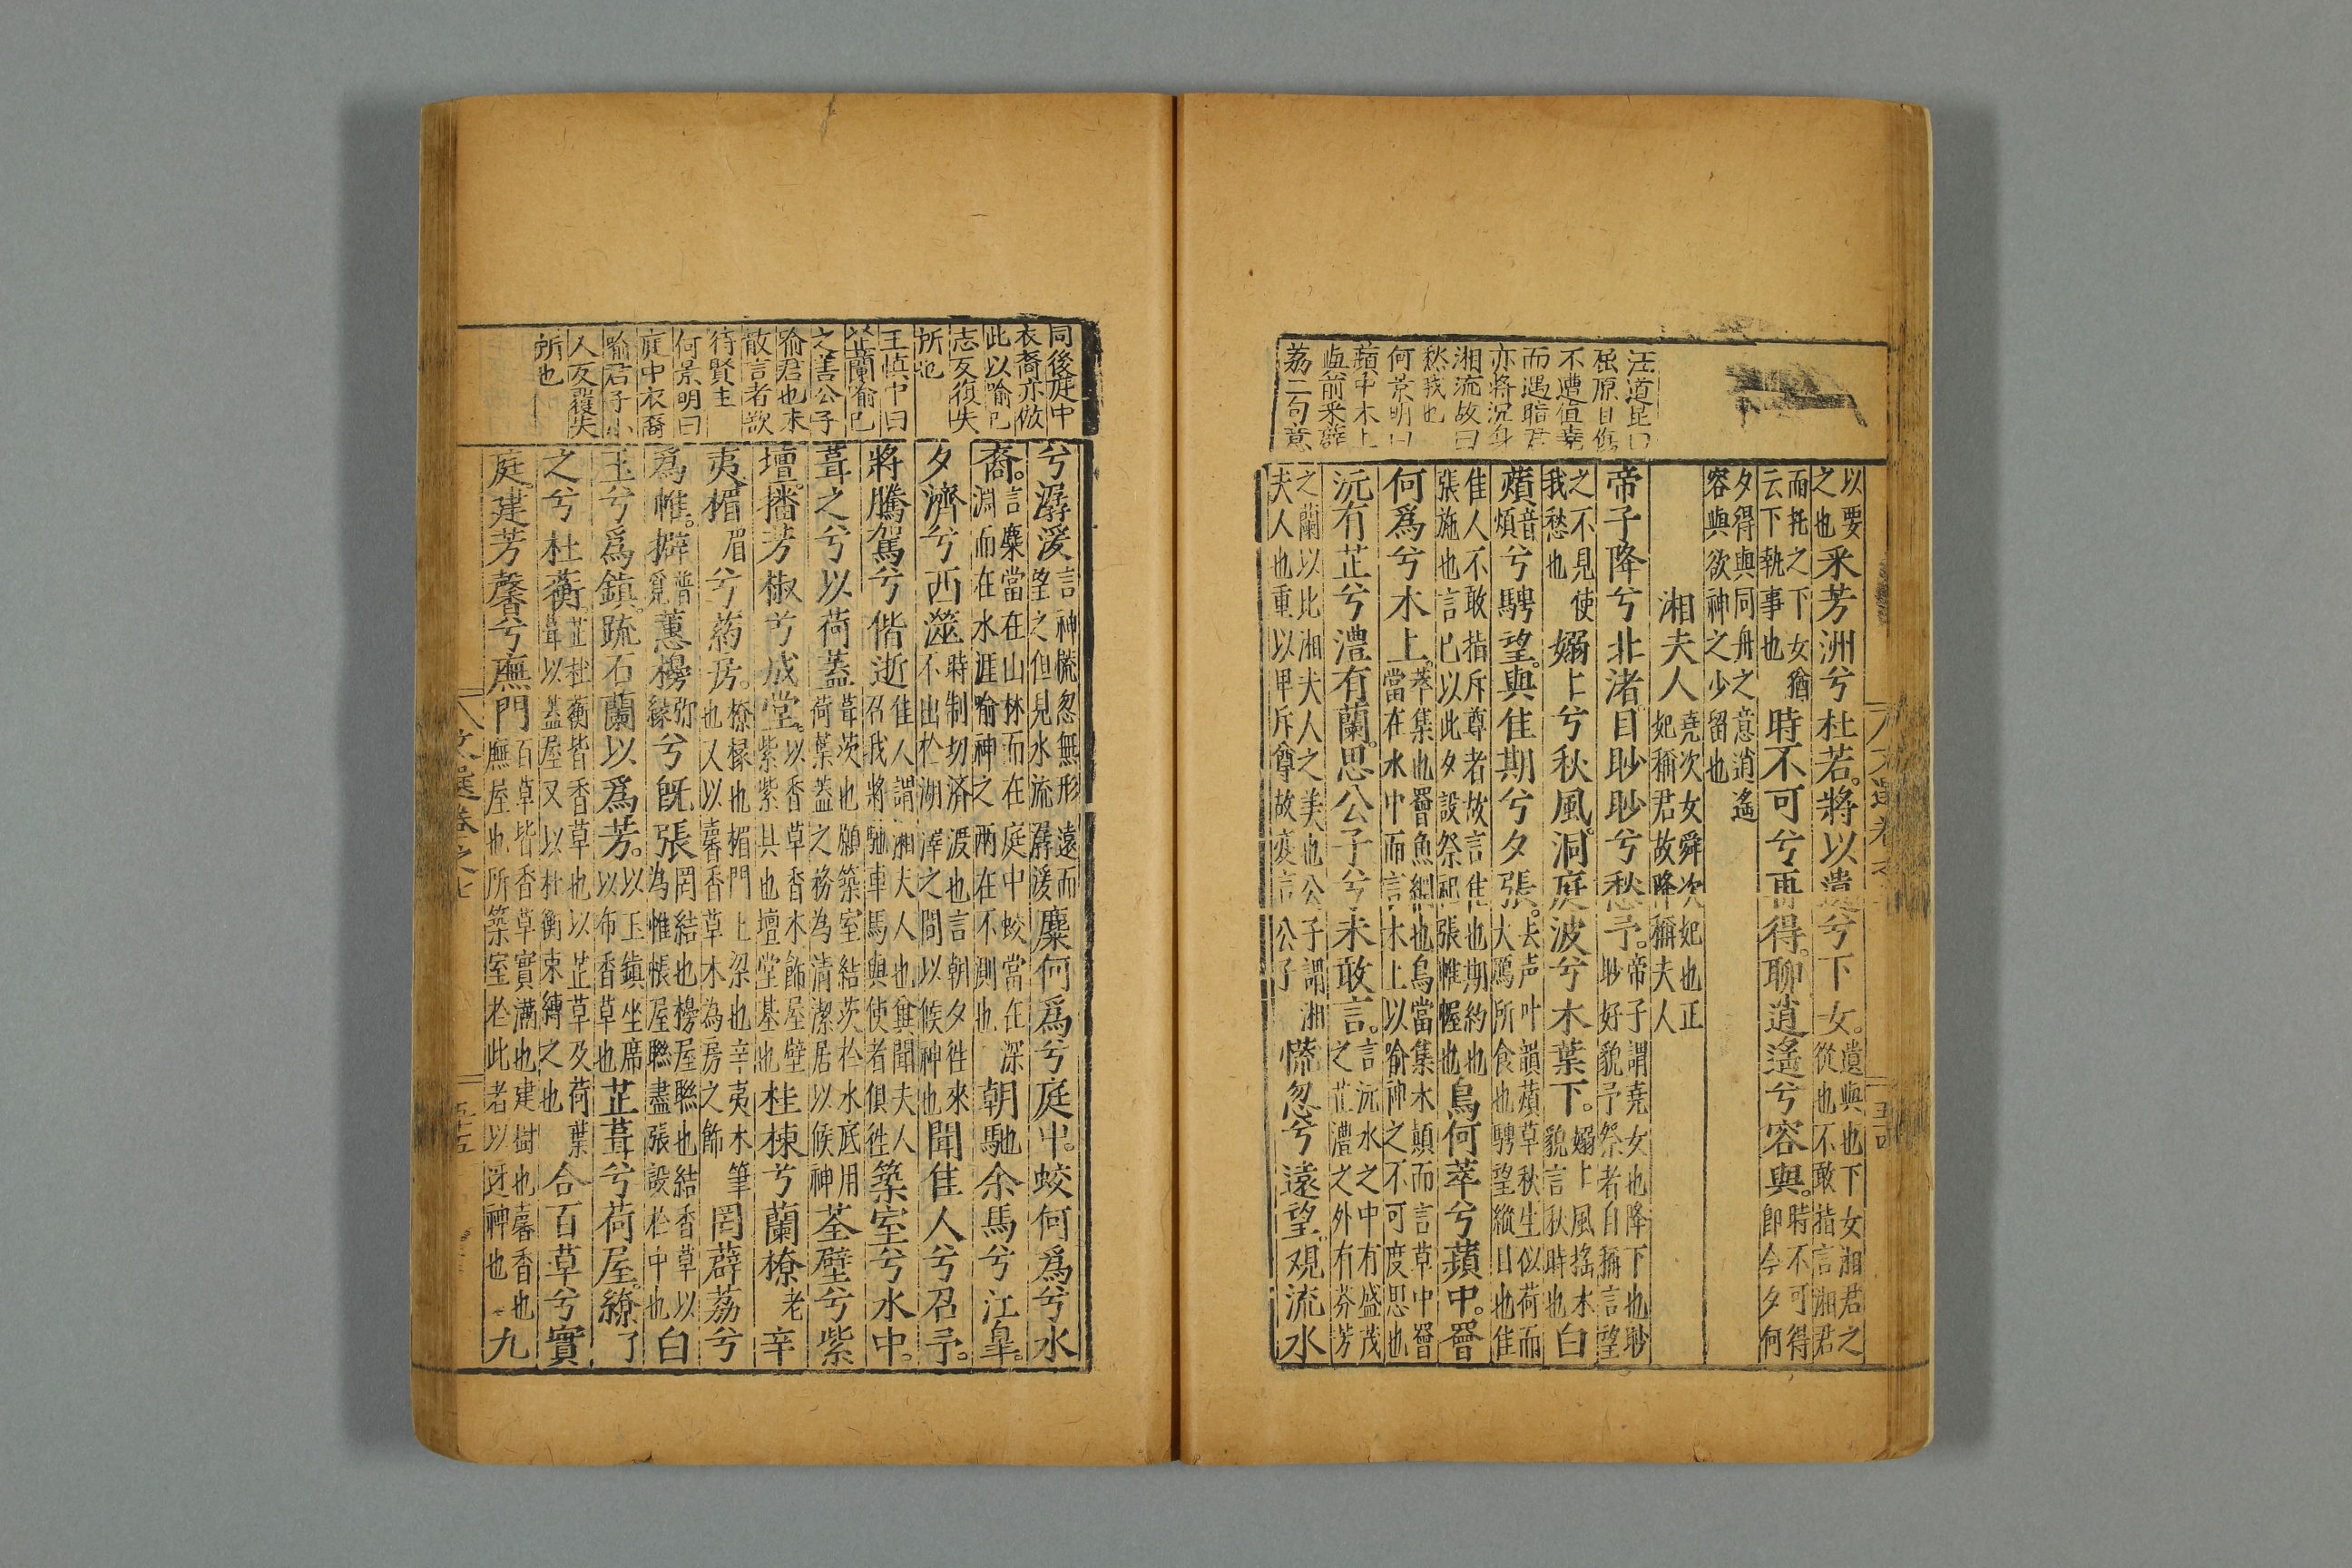 汪道昆曰
屈原自傷
不遭值堯
而遇暗君
亦將沉身
湘流故曰
愁我也
何景明曰
蘋中木上
與前采薜
荔二句意
以要之也采芳洲兮杜若。將以遺兮下女。遺與也下女湘君之從也不敢指言湘君
而托之下女猶云下執事也時不可兮再得。聊逍遙兮容與。時不可得即今夕何
夕得與同舟之意逍遙容與欲神之少留也
湘夫人堯次女舜次妃也正妃稱君故降稱夫人
帝子降兮北渚。目眇眇兮愁予。帝子謂堯女也降下也眇眇好貌予祭者自稱言望
之不見使我愁也嫋嫋兮秋風。洞庭波兮木葉下。嫋嫋風搖木貌言秋時也白
薠音煩兮騁望。與佳期兮夕張。去声叶韻薠草秋生似荷而大鴈所食也騁望縱目也佳
佳人不敢指斥尊者故言佳也期約也張施也言已以此夕設祭祀張帷幄也鳥何萃兮蘋中。罾
何爲兮木上。萃集也罾魚網也鳥當集木顛而言草中罾當在水中而言木上以喻神之不可度思也
沅有芷兮澧有蘭。思公子兮未敢言。言沅水之中有盛茂之芷澧之外有芬芳
之蘭以比湘夫人之美也公子謂湘夫人也重以卑斥尊故变言公子慌忽兮遠望。观流水
同後庭中
衣裔亦倣
此以喻己
志反復失
所也
王慎中曰
芷蘭喻己
之善公子
喻君也未
敢言者欲
待賢主
何景明曰
庭中衣裔
喻君子小
人反覆失
所也
兮潺湲言神慌忽無形遠而望之但見水流潺湲麋何爲兮庭中。蛟何爲兮水
裔。言麋當在山林而在庭中蛟當在深淵而在水涯喻神之兩在不測也朝馳余馬兮江臯。
夕濟兮西澨時制切済渡也言朝夕徃來不出於湖澤之間以候神也聞佳人兮召予。
將騰駕兮偕逝佳人謂湘夫人也兾聞夫人召我將馳車馬與使者俱徃築室兮水中。
葺之兮以荷蓋葺茨也願築室結茨於水底用荷葉蓋之務為清潔居以候神荃壁兮紫
壇。播芳椒兮成堂。以香草香木飾屋壁紫紫具也壇堂基也桂棟兮蘭橑老辛
夷楣眉兮葯房。橑椽也楣門上梁也辛夷木筆也又以馨香草木為房之飾罔薜荔兮
爲帷。擗普覓蕙櫋弥緜兮既張罔結也櫋屋聮也結香草以為帷帳屋聮盡張設於中也白
玉兮爲鎮。疏石蘭以爲芳。以玉鎮坐席以布香草也芷葺兮荷屋。繚了
之兮杜蘅。芷杜蘅皆香草也以芷草及荷葉葺以蓋屋又以杜衡束縛之也合百草兮實
庭。建芳馨兮廡門百草皆香草實滿也建樹也馨香也廡屋也所築室於此者以迓神也九
文選卷之七
五十五